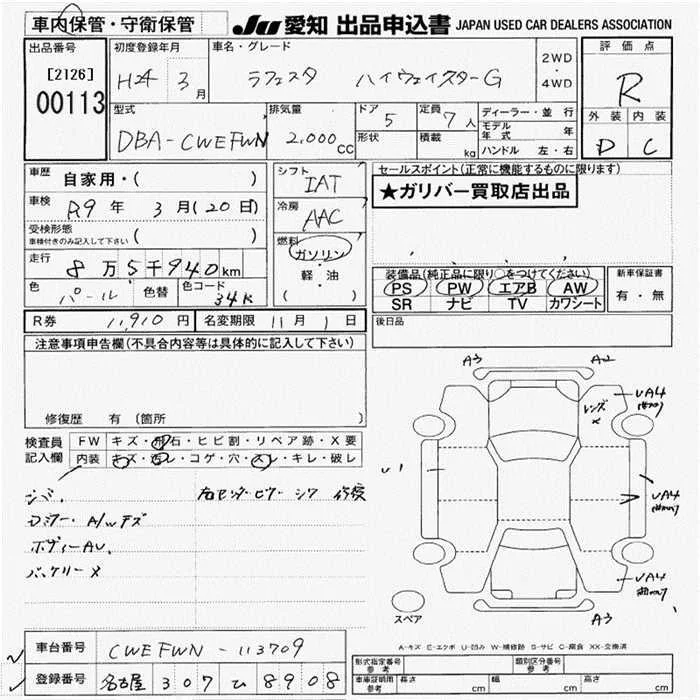 車内保管・守衛保管
JU 愛知 出品申込書 JAPAN USED CAR DEALERS ASSOCIATION
出品番号
[2126]
00113
初度登録年月
H24 3月
車名・グレード
ラフェスタ ハイウェイスターG
2WD・4WD
評価点
R
外装 内装
D C
型式
DBA-CWEFWN
排気量
2,000 CC
ドア 5
形状
定員 7人
積載 kg
ディーラー・並行
モデル年式 年
ハンドル 左・右
車歴 自家用・( )
車検 R9年 3月(20日)
受検形態
車検付きのみ記入して下さい ( )
走行 8万5千940km
色 パール 色替 色コード 34K
シフト
IAT
冷房
AAC
燃料
ガソリン
・
軽・油
( )
セールスポイント(正常に機能するものに限ります)
★ガリバー買取店出品
装備品(純正品に限り○をつけてください)
PS PW エアB AW
SR ナビ TV カワシート
新車保証書
有・無
後日品
R券 11,910円 名変期限 11月1日
注意事項申告欄(不具合内容等は具体的に記入して下さい)
修復歴 有 (箇所 )
検査員記入欄
FW キズ・飛石・ヒビ割・リペア跡・X要
内装 キズ・汚レ・コゲ・穴・スレ・キレ・破レ
シバ, 右センターピラー シワ 修後
ドアミラー A/Wキズ
ボディーAU、
バッテリーX
A3 A2
レンズ X
UA4
U1
UA4
UA4
A3
スペア
A-キズ E-エクボ U-凹み W-補修跡 S-サビ C-腐食 XX-交換済
車台番号 CWEFWN-113709
登録番号 名古屋 307 ひ 8908
形式指定番号 参考
類別区分番号 参考
車庫証明用 参考 長さ cm 幅 cm 高さ cm